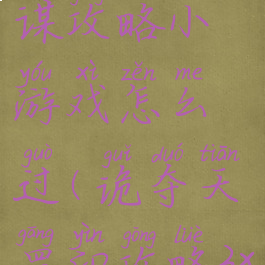 谋攻略小
yóu xì zěn me
游戏怎么
guò guǐ duó tiān
过(诡夺天
gāng yìn gōng lüè
罡印攻略